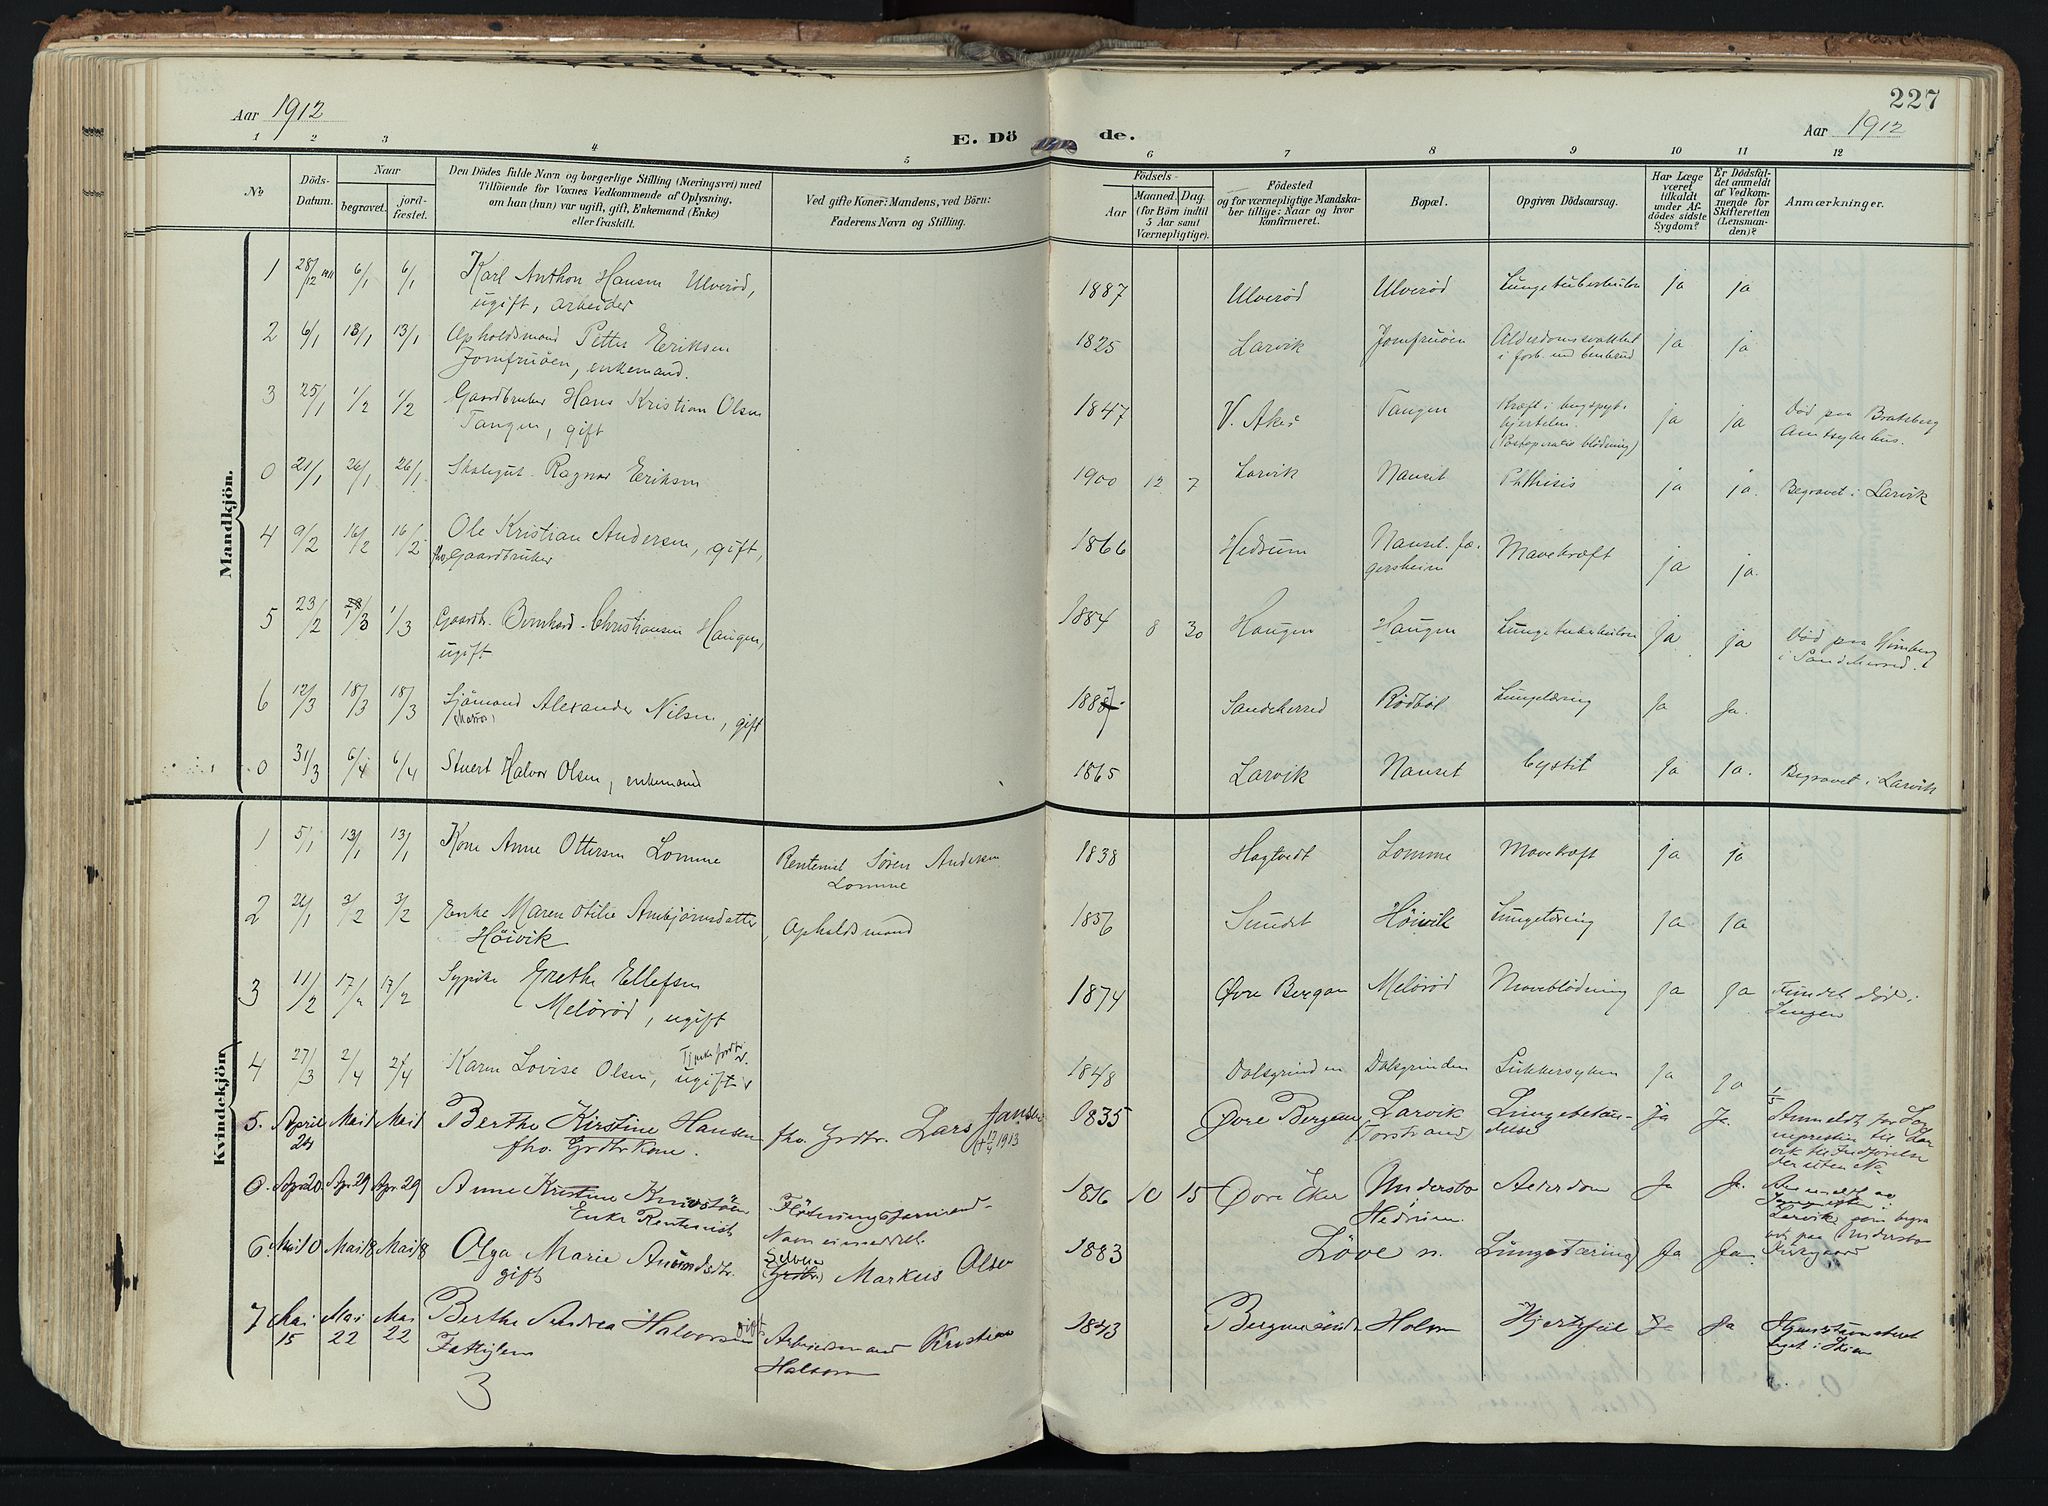 227
Aar 1912
E. Dö de.
Aar 1912
1 2 3 4 5 6 7 8 9 10 11 12
No
Döds-Datum.
Naar
begravet.
jord-fæstet.
Den Dödes fulde Navn og borgerlige Stilling (Næringsvei) med
Tilföiende for Voxnes Vedkommende af Oplysning,
om han (hun) var ugift, gift, Enkemand (Enke)
eller fraskilt.
Ved gifte Koner: Mandens, ved Börn:
Faderens Navn og Stilling.
Födsels-
Aar
Maaned. Dag.
(for Börn indtil
5 Aar samt
Værnepligtige).
Födested
og for værnepligtige Mandska-
ber tillige: Naar og hvor
konfirmeret.
Bopæl.
Opgiven Dödsaarsag.
Har Læge
været
tilkaldt
under Af-
dödes sidste
Sygdom?
Er Dödsfal-
det anmeldt
af Vedkom-
mende for
Skifteretten
(Lensman-
den)?
Anmærkninger.
Mandkjön.
1 28/12 1911 6/1 6/1 Karl Anthon Hansen Ulveröd, 1887 Ulveröd Ulveröd Lungetuberkulose ja ja
ugift, arbeider
2 6/1 13/1 13/1 Opholdsmand Petter Eriksen 1825 Larvik Jomfruöen Alderdomssvakhet ja ja
Jomfruöen, enkemand. i forb. med benbrud
3 25/1 1/2 1/2 Gaardbruker Hans Kristian Olsen 1847 V. Aker Tangen Kræft i ja ja Död paa Bratsberg
Tangen, gift (Postoperativ blödning) Amtssykehus.
0 21/1 26/1 26/1 Skolegut Ragnar Eriksen 1900 12 7 Larvik Nanset Phthisis ja ja. Begravet i Larvik
4 9/2 16/2 16/2 Ole Kristian Andersen, gift, 1866 Hedrum Nanset. Jæ- Mavekræft ja ja.
fhv. Gaardbruker gersheim
5 23/2 1/3 1/3 Gaardbr. Bernhard Christiansen Haugen, 1884 8 30 Haugen Haugen Lungetuberkulose Ja. ja Död paa
ugift i Sandeherred.
6 12/3 18/3 18/3 Sjömand Alexander Nilsen, gift 1887 Sandeherred Rödböl Lungetæring Ja Ja.
(Matros)
0 31/3 6/4 6/4 Stuert Halvor Olsen, enkemand 1865 Larvik Nanset Cystit Ja Ja. Begravet i Larvik
Kvindekjön
1 5/1 13/1 13/1 Kone Anne Ottersen Lomme Rentenist Sören Andersen 1838 Hagtvedt Lomme Mavekræft ja ja
Lomme
2 26/1 3/2 3/2 Enke Maren Otilie Ambjörnsdatter Opholdsmand 1836 Sundet Höivik Lungetæring Ja ja
Höivik
3 11/2 17/2 17/2 Sypike Grethe Ellefsen 1874 Övre Bergan Melöröd Maveblödning ja ja Fundet död i
Melöröd, ugift Sengen
4 27/3 2/4 2/4 Karen Lovise Olsen, ugift 1848 Dalsgrinden Dalsgrinden Sukkersyken ja ja
5. April 24 Mai 1 Mai 1 Berthe Kirstine Hansen fhv. Grdbr. Lars Jansen 1835 Övre Bergan Larvik Lungebetæn- Ja Ja. Anmeldt for
fhv. Grdbr.kone. 1913 Torstrand delse
uten No
0. Apr 20 Apr 29 Apr 29 Anne Kristine 1816 10 15 Övre Eker Understbo Alderdom Ja Ja. Anmeldt av
Enke Rentenist Navn ei meddelt. Hedrum. Larvik som begra
vet paa Understbo
6 Mai 10 Mai 18 Mai 18 Olga Marie Amundsdtr. Selveier (Grdbr.) Markus Olsen 1883 Löve n. Lungetæring Ja Ja. Kirkegaard
gift
7 Mai 15 Mai 22 Mai 22 Berthe Andrea Halvorsen gift Arbeidsmand Kristian 1843 Holm Hjertefeil Ja Ja
Fattiglem Halvorsen i Skien
3